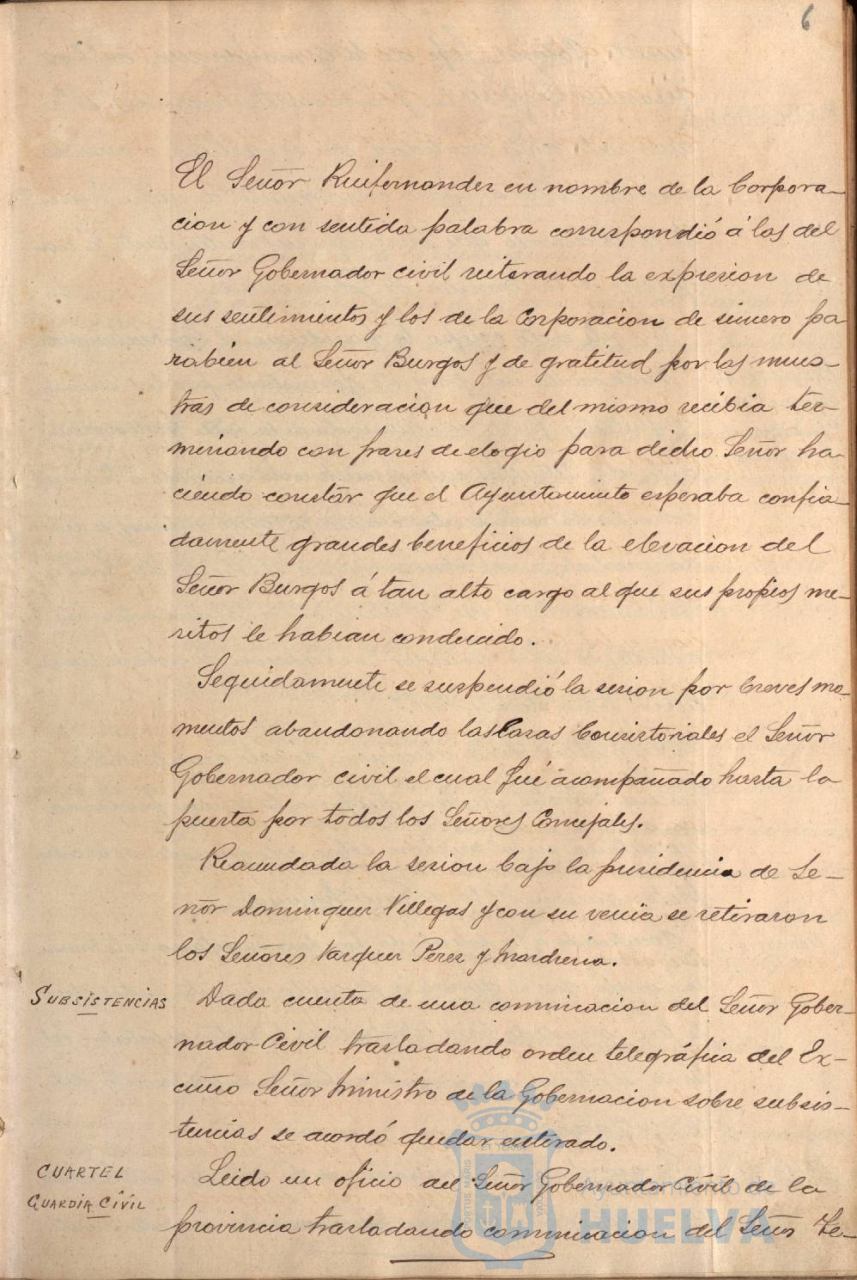 6
El Señor Ruifernandez en nombre de la Corpora-
cion y con sentida palabra correspondió á las del
Señor Gobernador civil reiterando la expresion de
sus sentimientos y los de la Corporacion de sincero pa
rabien al Señor Burgos y de gratitud por las mues-
tras de consideracion que del mismo recibia ter-
minando con frases de elogio para dicho Señor ha-
ciendo constar que el Ayuntamiento esperaba confia-
damente grandes beneficios de la elevacion del
Señor Burgos á tan alto cargo al que sus propios me-
ritos le habian conducido.
Seguidamente se suspendió la sesion por breves mo-
mentos abandonando las Casas Consistoriales el Señor
Gobernador civil el cual fué acompañado hasta la
puerta por todos los Señores Concejales.
Reanudada la sesion bajo la presidencia de Se-
ñor Dominguez Villegas y con su venia se retiraron
los Señores Vazquez Perez y
SUBSISTENCIAS Dada cuenta de una cominacion del Señor Gober-
nador Civil trasladando orden telegráfica del Ex-
cmo Señor Ministro de la Gobernacion sobre subsis-
tencias se acordó quedar enterado.
CUARTEL Leido un oficio del Señor Gobernador Civil de la
GUARDIA CIVIL provincia trasladando cominicacion del Señor Te-
Ayuntamiento de
HUELVA